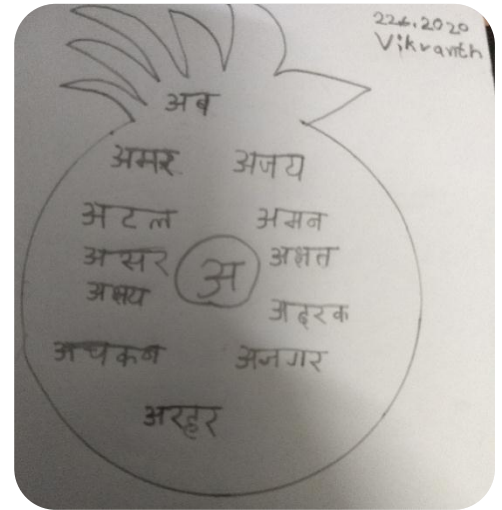 22.6.2020
Vikranth
अब
अमर अजय
अटल अमन
असर अ अक्षत
अक्षय अदरक
अचकन अजगर
अरहर